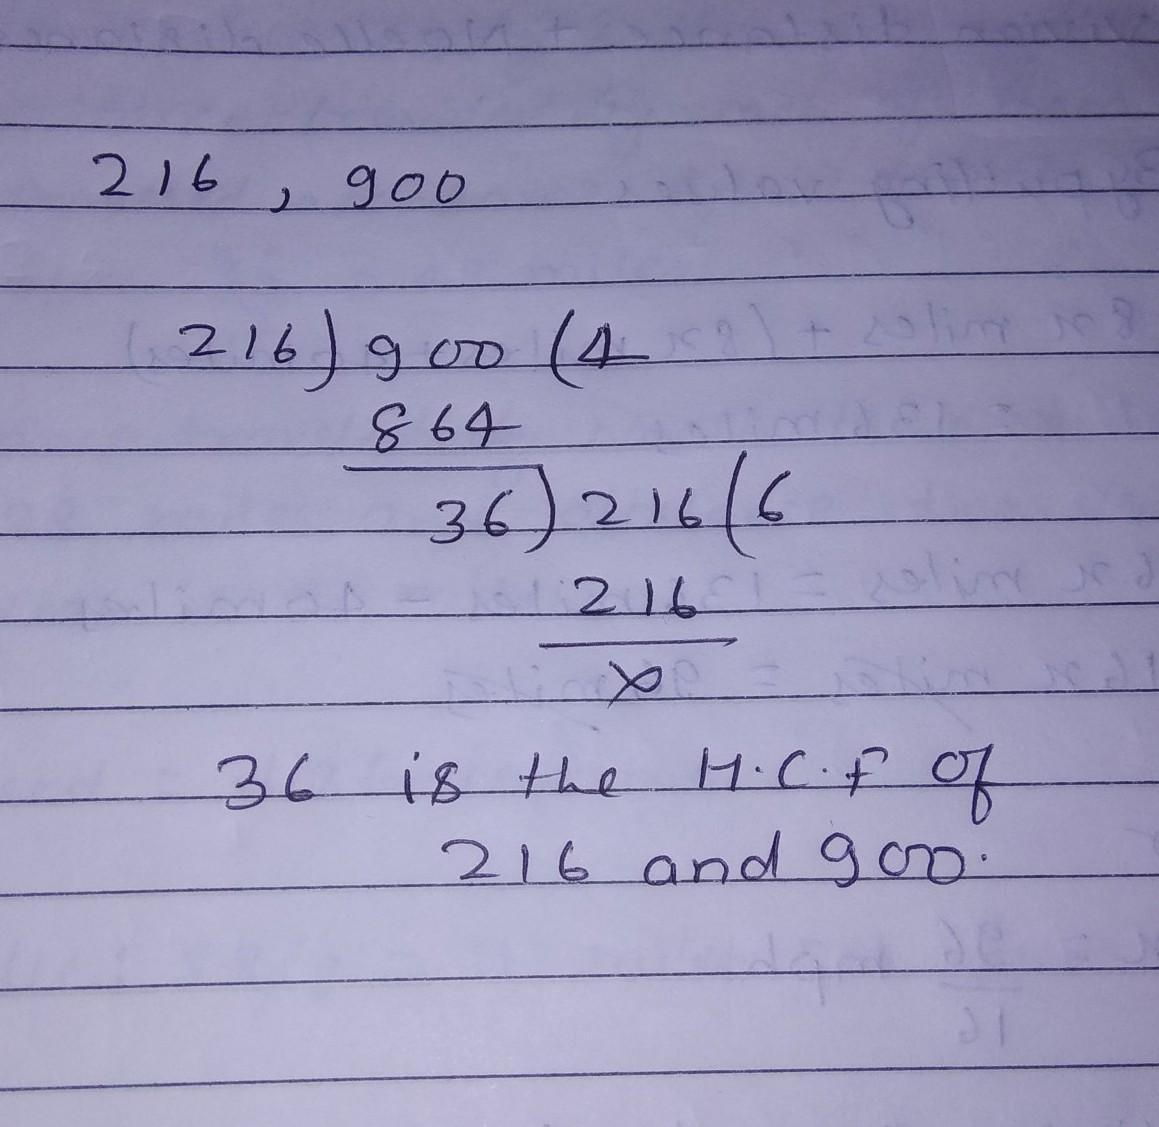 216 , 900
216) 900 (4
864
36) 216 (6
216
x
36 is the H.C.F of
216 and 900.